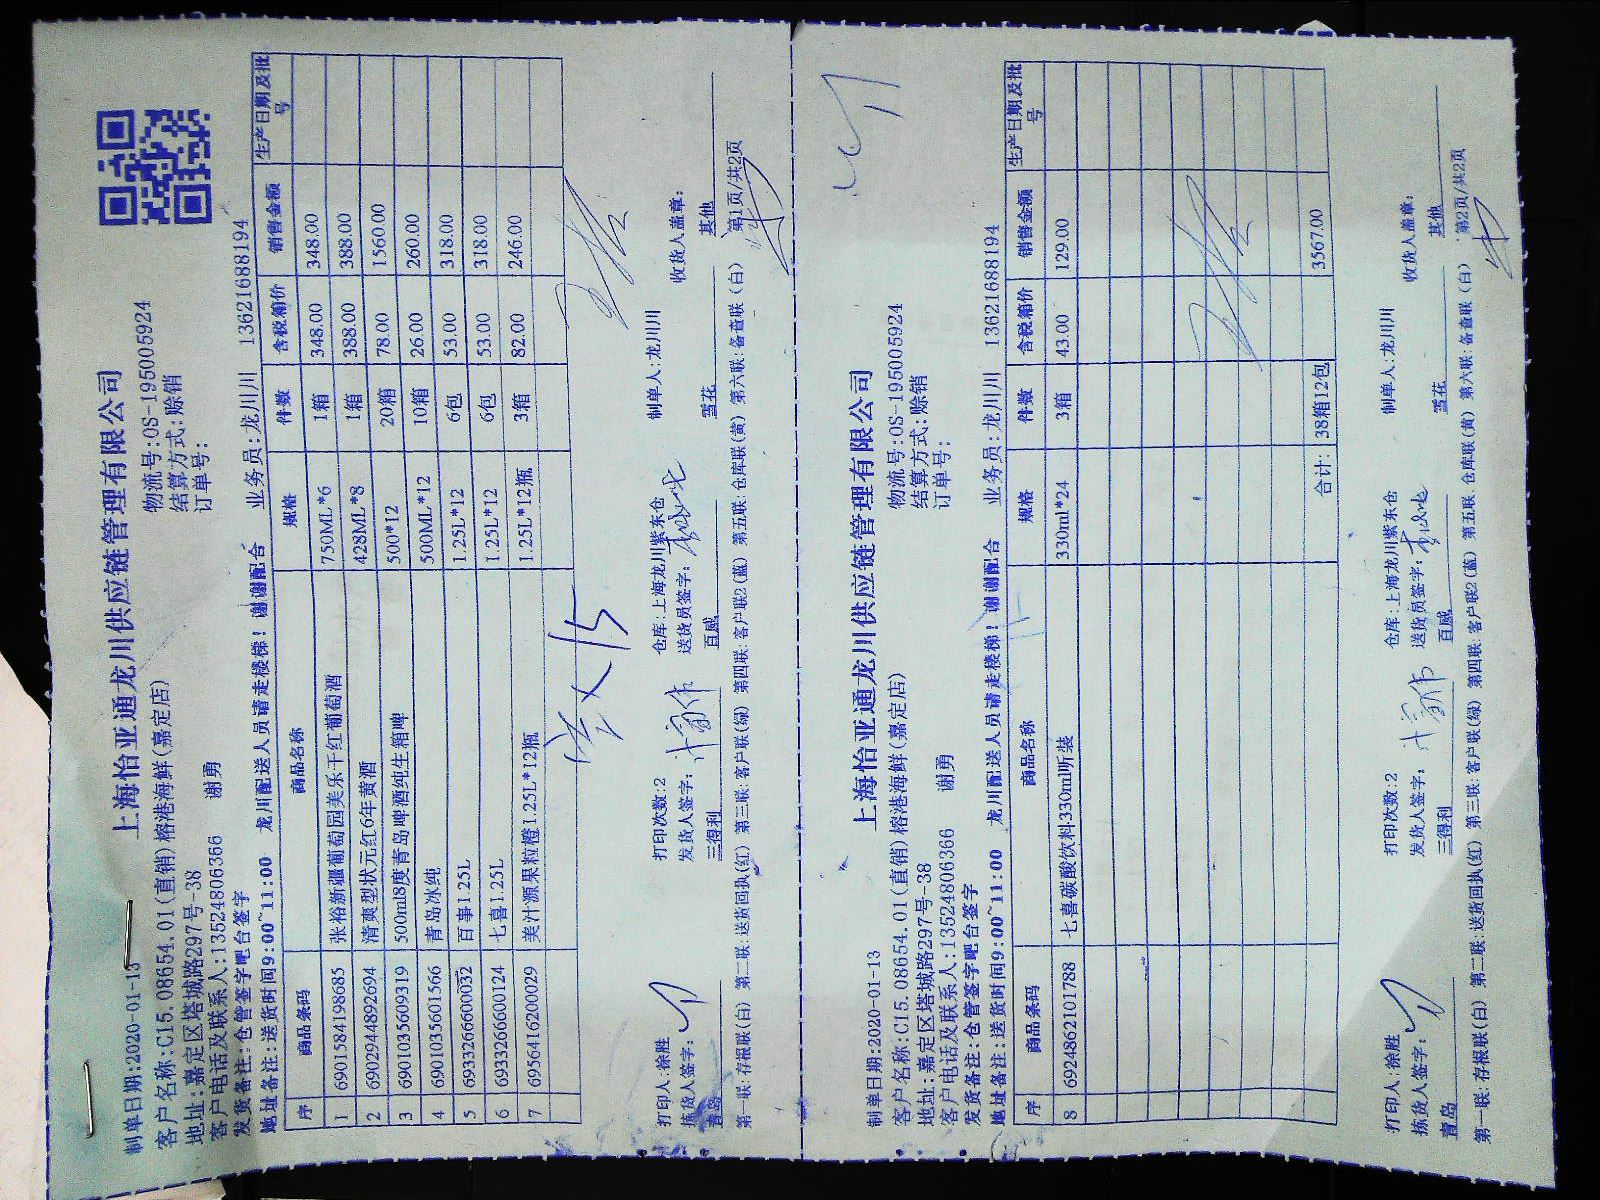 上海怡亚通龙川供应链管理有限公司
制单日期:2020-01-13 物流号:OS-195005924
客户名称:C15.08654.01(直销)榕港海鲜(嘉定店) 结算方式:赊销
地址:嘉定区塔城路297号-38 订单号:
客户电话及联系人:13524806366 谢勇
发货备注:仓管签字吧台签字
地址备注:送货时间9:00~11:00 龙川配送人员请走楼梯!谢谢配合 业务员:龙川川 13621688194
序 商品条码 商品名称 规格 件数 含税箱价 销售金额 生产日期及批号
1 6901584198685 张裕新疆葡萄园美乐干红葡萄酒 750ML*6 1箱 348.00 348.00
2 6902944892694 清爽型状元红6年黄酒 428ML*8 1箱 388.00 388.00
3 6901035609319 500ml8度青岛啤酒纯生箱啤 500*12 20箱 78.00 1560.00
4 6901035601566 青岛冰纯 500ML*12 10箱 26.00 260.00
5 6933266600032 百事1.25L 1.25L*12 6包 53.00 318.00
6 6933266600124 七喜1.25L 1.25L*12 6包 53.00 318.00
7 6956416200029 美汁源果粒橙1.25L*12瓶 1.25L*12瓶 3箱 82.00 246.00
打印人:徐胜 打印次数:2 仓库:上海龙川紫东仓 制单人:龙川川
拣货人签字: 发货人签字: 送货员签字: 收货人盖章:
青岛 三得利 百威 雪花 其他
第一联:存根联(白) 第二联:送货回执(红) 第三联:客户联(绿) 第四联:客户联2(蓝) 第五联:仓库联(黄) 第六联:备查联(白) 第1页/共2页
上海怡亚通龙川供应链管理有限公司
制单日期:2020-01-13 物流号:OS-195005924
客户名称:C15.08654.01(直销)榕港海鲜(嘉定店) 结算方式:赊销
地址:嘉定区塔城路297号-38 订单号:
客户电话及联系人:13524806366 谢勇
发货备注:仓管签字吧台签字
地址备注:送货时间9:00~11:00 龙川配送人员请走楼梯!谢谢配合 业务员:龙川川 13621688194
序 商品条码 商品名称 规格 件数 含税箱价 销售金额 生产日期及批号
8 6924862101788 七喜碳酸饮料330ml听装 330ml*24 3箱 43.00 129.00
合计: 38箱12包 3567.00
打印人:徐胜 打印次数:2 仓库:上海龙川紫东仓 制单人:龙川川
拣货人签字: 发货人签字: 送货员签字: 收货人盖章:
青岛 三得利 百威 雪花 其他
第一联:存根联(白) 第二联:送货回执(红) 第三联:客户联(绿) 第四联:客户联2(蓝) 第五联:仓库联(黄) 第六联:备查联(白) 第2页/共2页